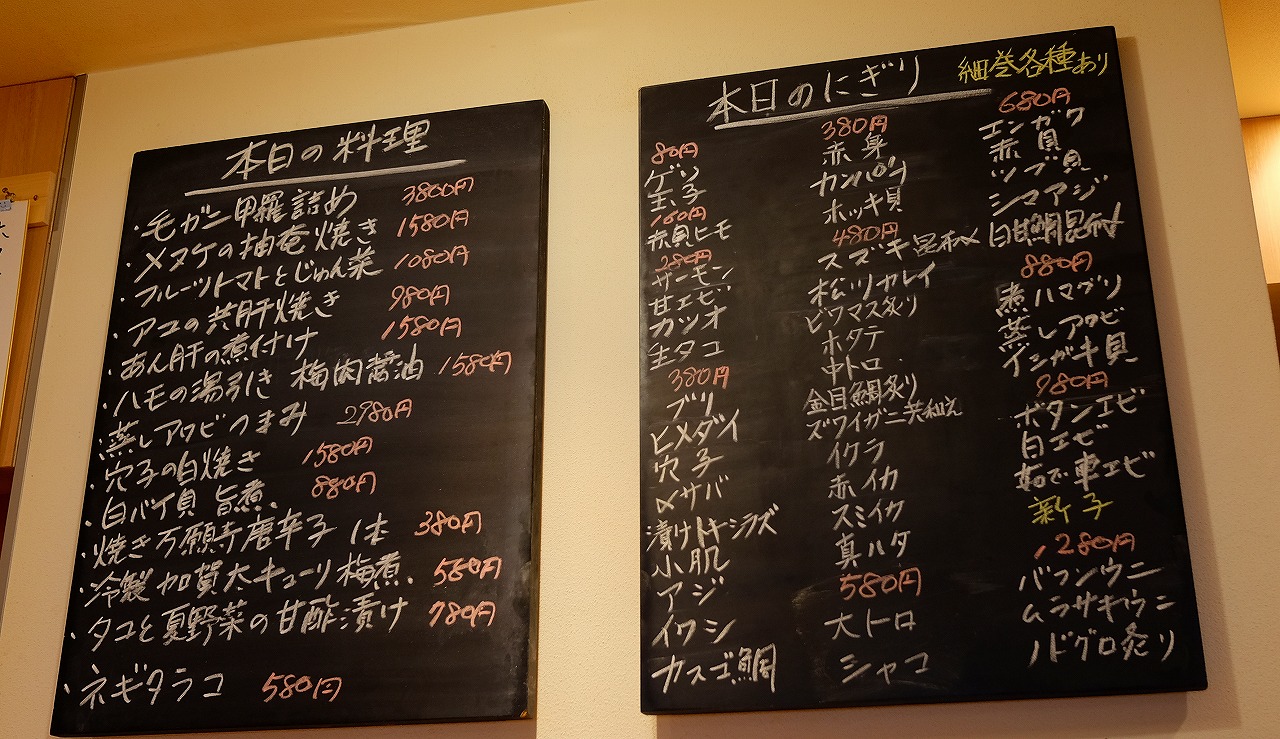 本日の料理
・毛ガニ甲羅詰め 3800円
・メヌケの柚庵焼き 1580円
・フルーツトマトとじゅん菜 1080円
・アユの共肝焼き 980円
・あん肝の煮付け 1580円
・ハモの湯引き 梅肉醤油 1580円
・蒸しアワビつまみ 2980円
・穴子の白焼き 1580円
・白バイ貝 旨煮 880円
・焼き万願寺唐辛子 1本 380円
・冷製加賀太キューリ梅煮 580円
・タコと夏野菜の甘酢漬け 780円
・ネギタラコ 580円
本日のにぎり
細巻各種あり
80円
ゲソ
玉子
160円
赤貝ヒモ
280円
サーモン
甘エビ
カツオ
生タコ
380円
ブリ
ヒメダイ
穴子
〆サバ
漬けトキシラズ
小肌
アジ
イワシ
カスゴ鯛
380円
赤身
カンパチ
ホッキ貝
480円
スズキ昆布〆
松ツカレイ
ビワマス炙り
ホタテ
中トロ
金目鯛炙り
ズワイガニ共和え
イクラ
赤イカ
スミイカ
真ハタ
580円
大トロ
シャコ
680円
エンガワ
赤貝
ツブ貝
シマアジ
白甘鯛昆布〆
880円
煮ハマグリ
蒸しアワビ
イシガキ貝
980円
ボタンエビ
白エビ
茹で車エビ
新子
1280円
バフンウニ
ムラサキウニ
ノドグロ炙り